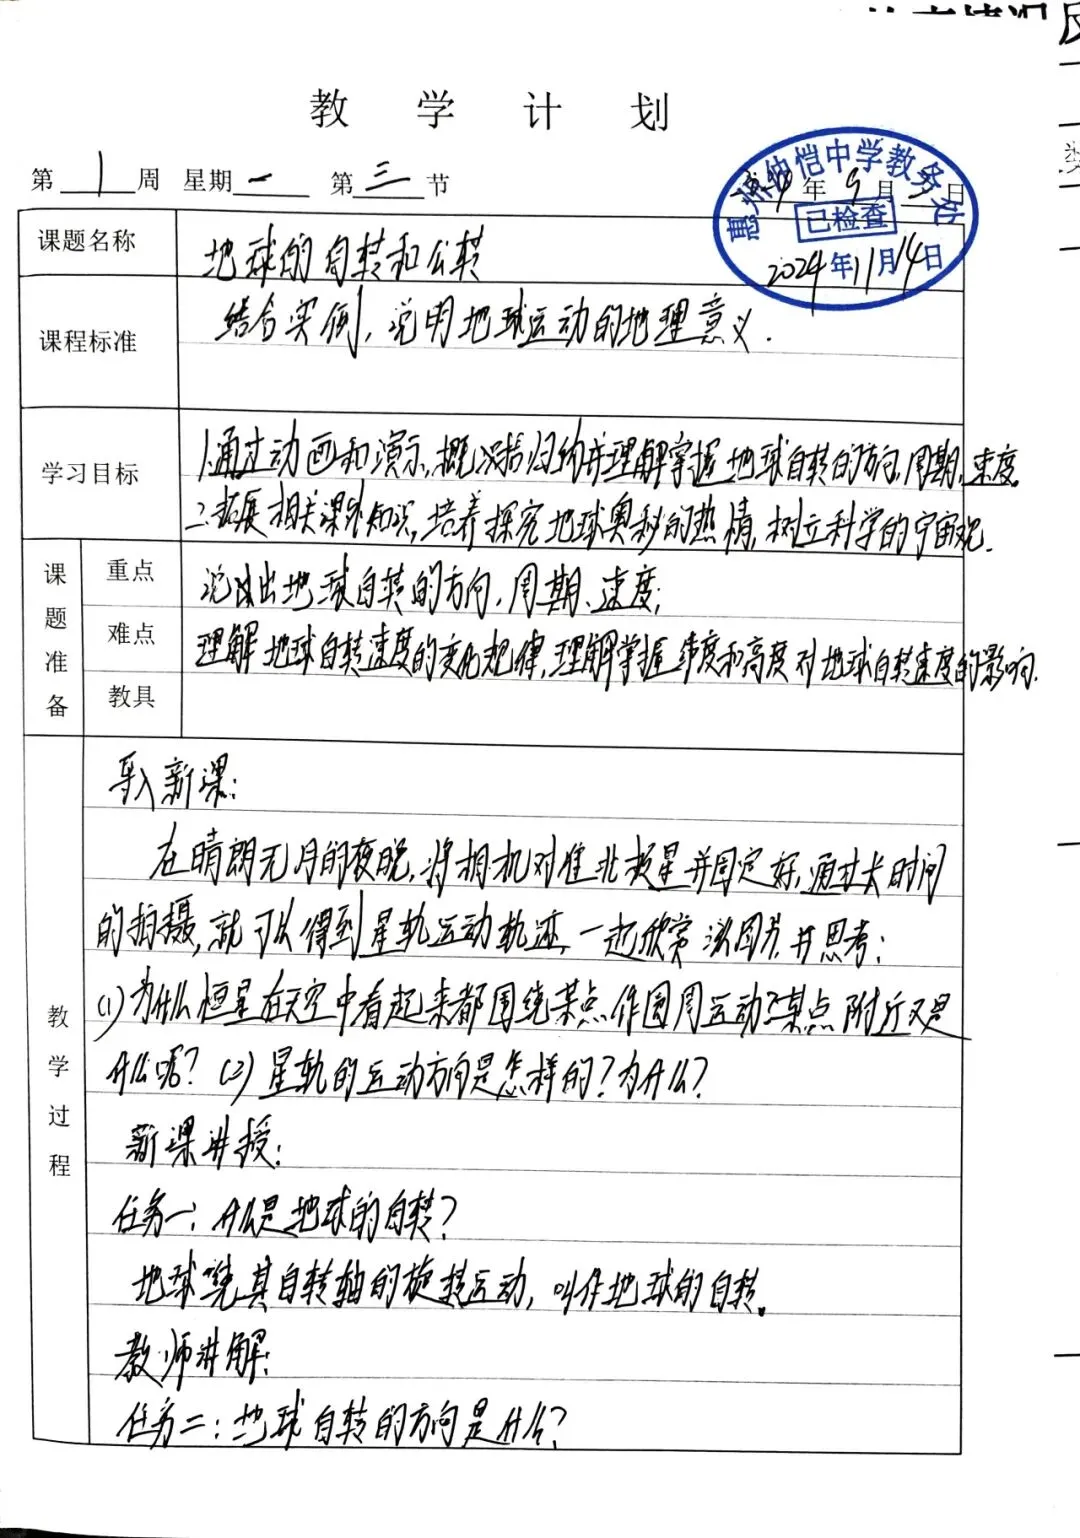 教学计划
第1周 星期一 第三节 年9月 日
惠州幼恺中学教务处
已检查
2024年11月14日
课题名称 地球的自转和公转
课程标准 结合实例,说明地球运动的地理意义.
学习目标 1.通过动画和演示,概括归纳并理解掌握地球自转的方向,周期,速度.
2.拓展相关课外知识,培养探究地球奥秘的热情,树立科学的宇宙观.
课题准备
重点 说出地球自转的方向,周期、速度;
难点 理解地球自转速度的变化规律,理解掌握纬度和高度对地球自转速度的影响.
教具
教学过程
导入新课:
在晴朗无月的夜晚,将相机对准北极星并固定好,通过长时间
的拍摄,就可以得到星轨运动轨迹,一起欣赏 图片,并思考:
(1)为什么恒星在天空中看起来都围绕某点作圆周运动?某点附近又是
什么呢?(2)星轨的运动方向是怎样的?为什么?
新课讲授:
任务一:什么是地球的自转?
地球绕其自转轴的旋转运动,叫作地球的自转。
教师讲解:
任务二:地球自转的方向是什么?